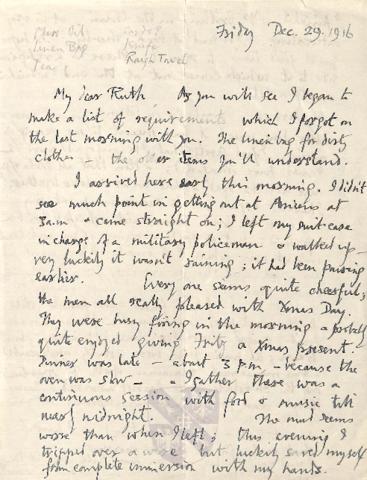 Friday Dec. 29. 1916
Linen Bag Knife
Rough Towel
My dear Ruth As you will see I began to
make a list of requirements which I forgot on
the last morning with you. The linen bag for dirty
clothes – the other items you'll understand.
I arrived here early this morning. I didn't
see much point in getting out at Amiens at
3 a.m & came straight on; I left my suit-case
in charge of a military policeman & walked up –
very luckily it wasn't raining; it had been pouring
earlier. Every one seems quite cheerful;
the men all really pleased with Xmas Day.
They were busy firing in the morning & probably
quite enjoyed giving Fritz a Xmas present.
Dinner was late – about 3 p.m – because the
oven was slow – & I gather there was a
continuous session with food & music till
nearly midnight. The mud seems
worse than when I left; this evening I
tripped over a wire but luckily saved myself
from complete immersion with my hands.